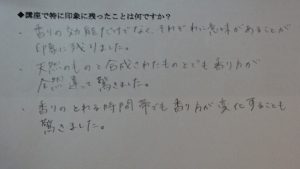 ◆講座で特に印象に残ったことは何ですか？
・香りの効能だけでなく、それぞれに意味があることが
印象に残りました。
・天然のものと合成されたものとでも香り方が
全然違って驚きました。
・香りのとれる時間帯でも香り方が変化することも
驚きました。